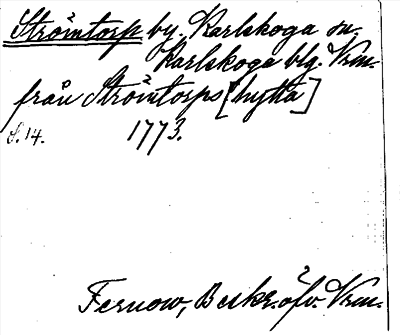 Strömtorp by. Karlskoga sn.
Karlskoga blg. Vrm.
från Strömtorps [hytta]
S. 14. 1773.
Fernow, Beskr. öfv. Vrm.